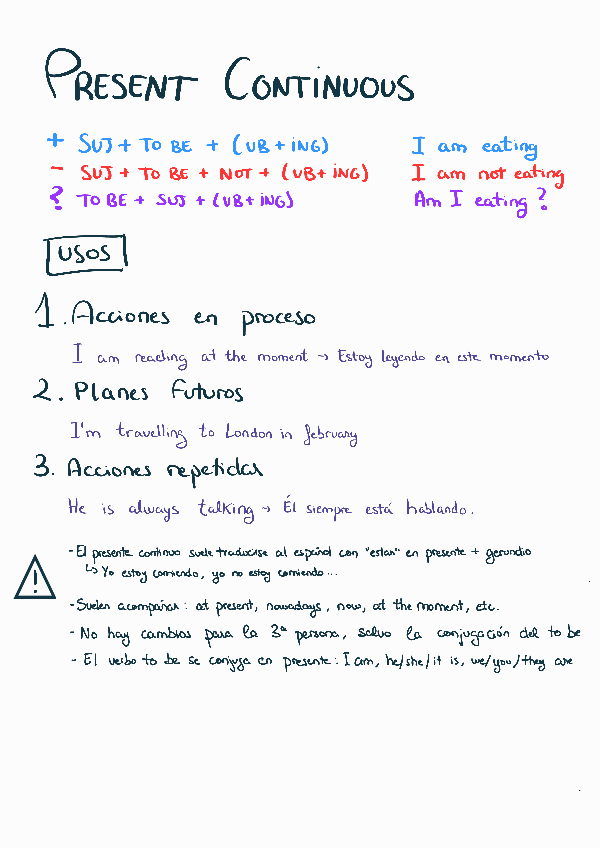 PRESENT CONTINUOUS
+ SUJ + TO BE + (VB + ING) I am eating
- SUJ + TO BE + NOT + (VB + ING) I am not eating
? TO BE + SUJ + (VB + ING) Am I eating?
USOS
1. Acciones en proceso
I am reading at the moment → Estoy leyendo en este momento
2. Planes futuros
I'm travelling to London in february
3. Acciones repetidas
He is always talking → Él siempre está hablando.
- El presente continuo suele traducirse al español con "estar" en presente + gerundio
↳ Yo estoy comiendo, yo no estoy comiendo...
- Suelen acompañar: at present, nowadays, now, at the moment, etc.
- No hay cambios para la 3ª persona, salvo la conjugación del to be
- El verbo to be se conjuga en presente: I am, he/she/it is, we/you/they are